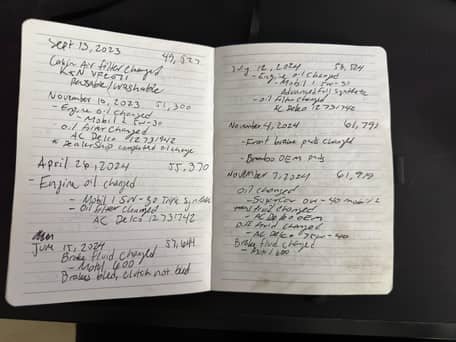 Sept 13, 2023 49,527
Cabin Air filter changed
K&N VF2071
Reusable/washable
November 10, 2023 51,300
- Engine oil changed
- Mobil 1 5w-30
oil filter changed
AC Delco 12731742
* Dealership completed oil change
April 26, 2024 55,370
- Engine oil changed
- Mobil 1 5w-30
- Oil filter changed
AC Delco 12731742
June 15, 2024
Brake fluid changed
- Motul 600
Brakes bled, clutch not bled
July 12, 2024
- Engine oil changed
- Mobil 1 5w-30
Advanced full synthetic
- oil filter changed
AC Delco 12731742
November 4, 2024 61,792
- Front brake pads changed
- Brembo OEM pads
November 7, 2024
oil changed
- Supercar 0w-40 mobil 1
fluid changed
- AC Delco OEM
fluid changed
- AC Delco
Brake fluid changed
- Motul 600